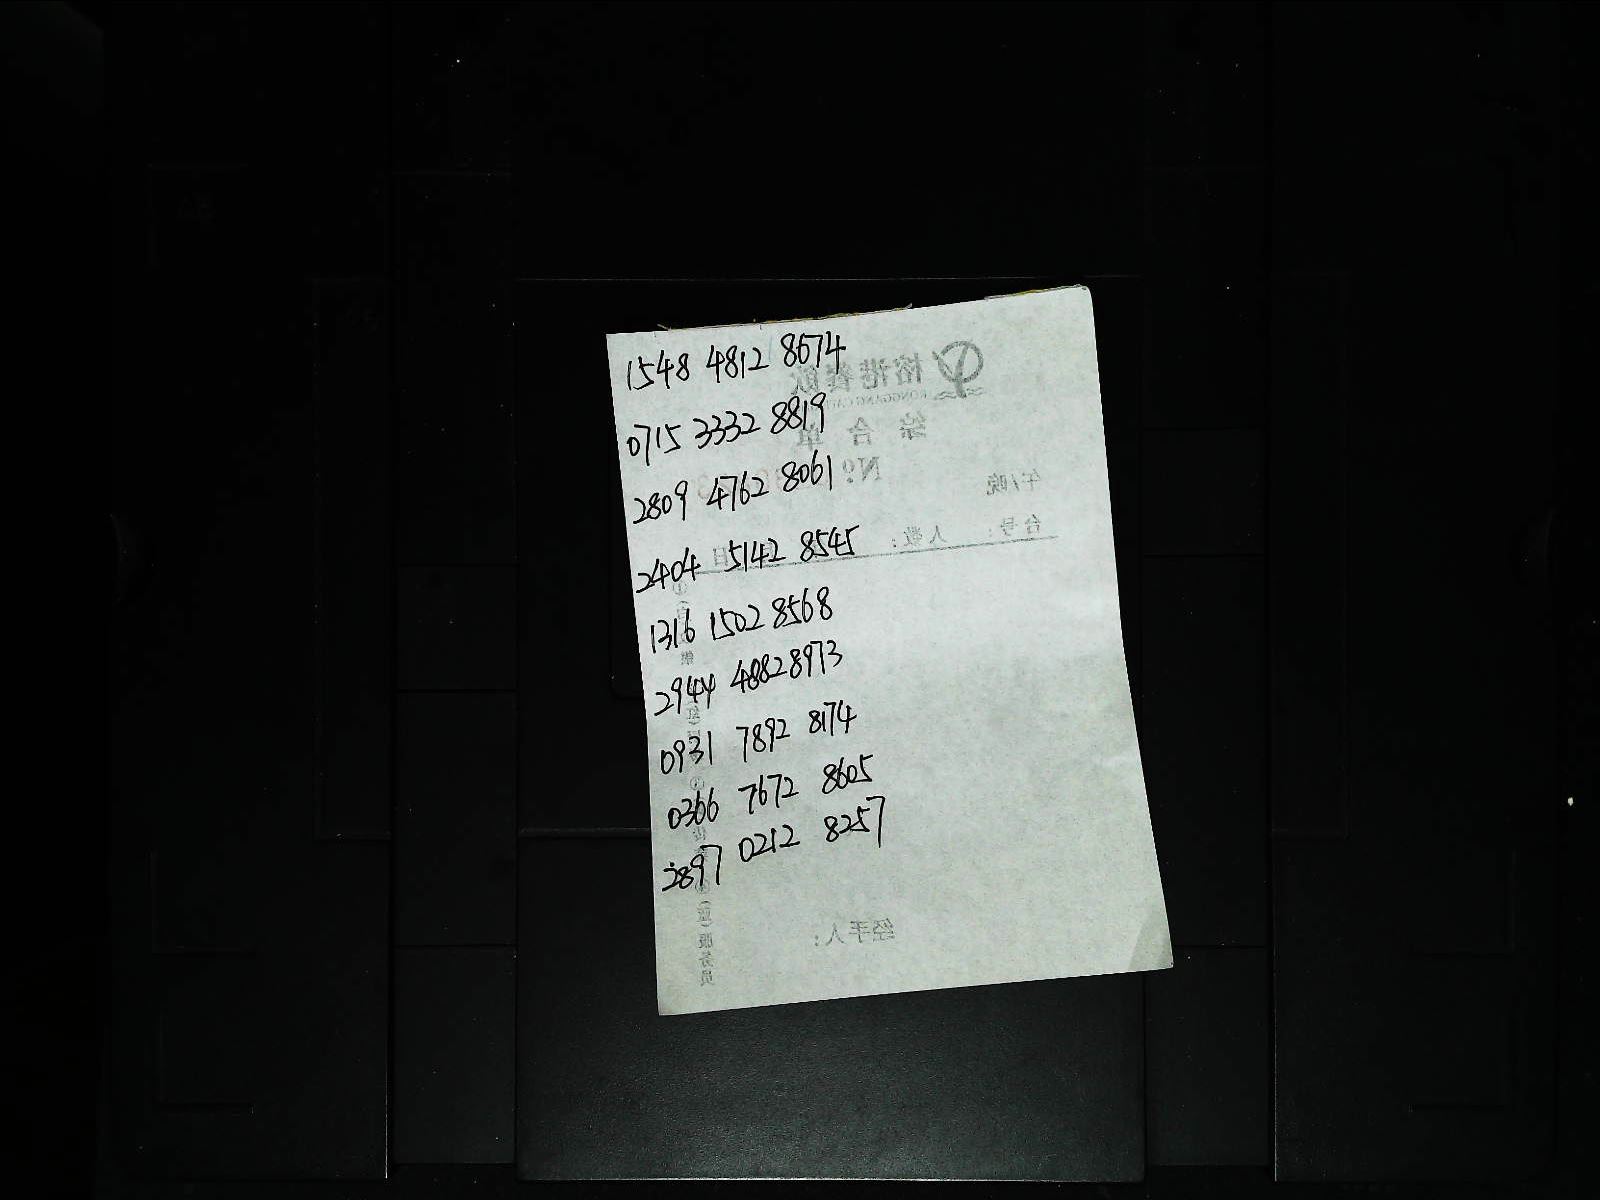 1548 4812 8674
0715 3332 8819
2809 4762 8061
2404 5142 8545
1316 1502 8568
2944 4882 8973
0931 7892 8174
0366 7672 8605
2897 0212 8257
榕港餐飲
RONGGANG
综合单
Nº
午/晚
台号： 人数： 日
经手人：
服务员